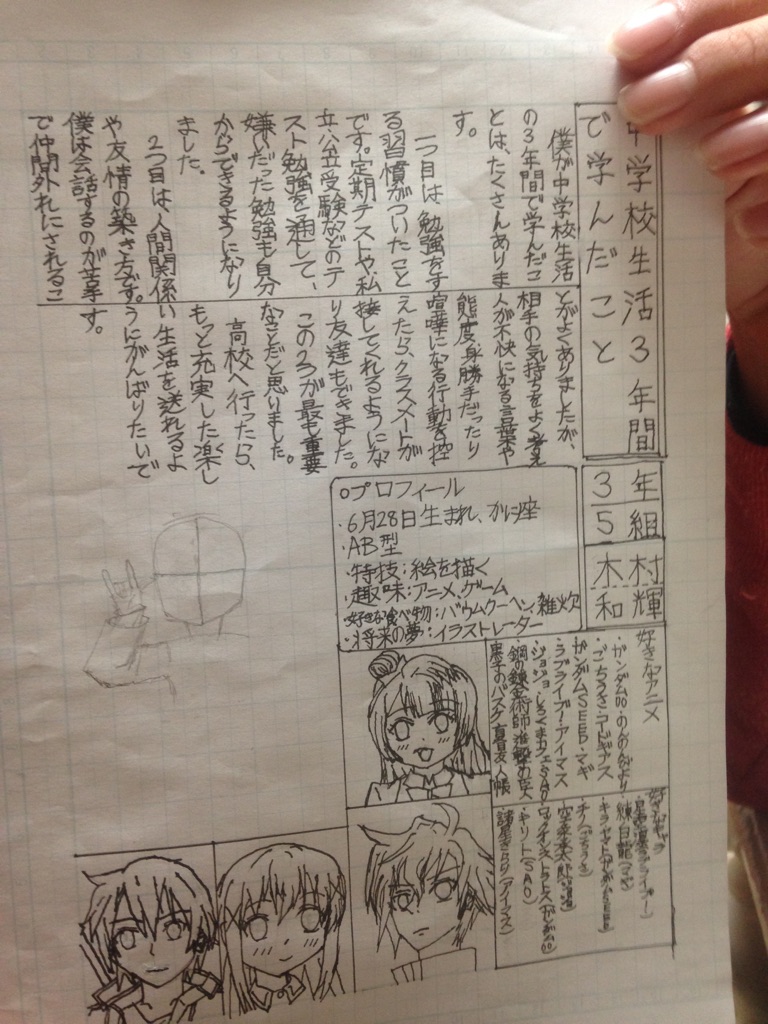 中学校生活3年間
で学んだこと
3年
5組
木村
和輝
僕が中学校生活
の3年間で学んだこ
とは、たくさんありま
す。
一つ目は勉強をす
る習慣がついたこと
です。定期テストや、私
立公立受験などのテ
スト勉強を通して、
嫌いだった勉強も自分
からできるようになり
ました。
2つ目は、人間関係
や友情の築き方です。
僕は会話するのが苦手
で仲間外れにされるこ
とがよくありましたが、
相手の気持ちをよく考え
人が不快になる言葉や
態度、身勝手だったり
喧嘩になる行動を控
えたら、クラスメートが
接してくれるようにな
り友達もできました。
この2つが最も重要
なことだと思いました。
高校へ行ったら、
もっと充実した楽し
い生活を送れるよ
うにがんばりたいで
す。
○プロフィール
・6月28日生まれ、かに座
・AB型
・特技：絵を描く
・趣味：アニメ、ゲーム
・好きな食べ物：バウムクーヘン、雑炊
・将来の夢：イラストレーター
好きなアニメ
・ガンダム00・のんのんびより
・ごちうさ・コードギアス
・ガンダムSEED・マギ
・ラブライブ・アイマス
・ジョジョ・しろくまカフェ・SAO
・鋼の錬金術師・進撃の巨人
・黒子のバスケ・夏目友人帳
好きなキャラ
・練白龍(マギ)
・キラ・ヤマト(ガンダムSEED)
・チノ(ごちうさ)
・空条承太郎
・ロックオン・ストラトス(ガンダム00)
・キリト(SAO)
・諸星きらり(アイマス)